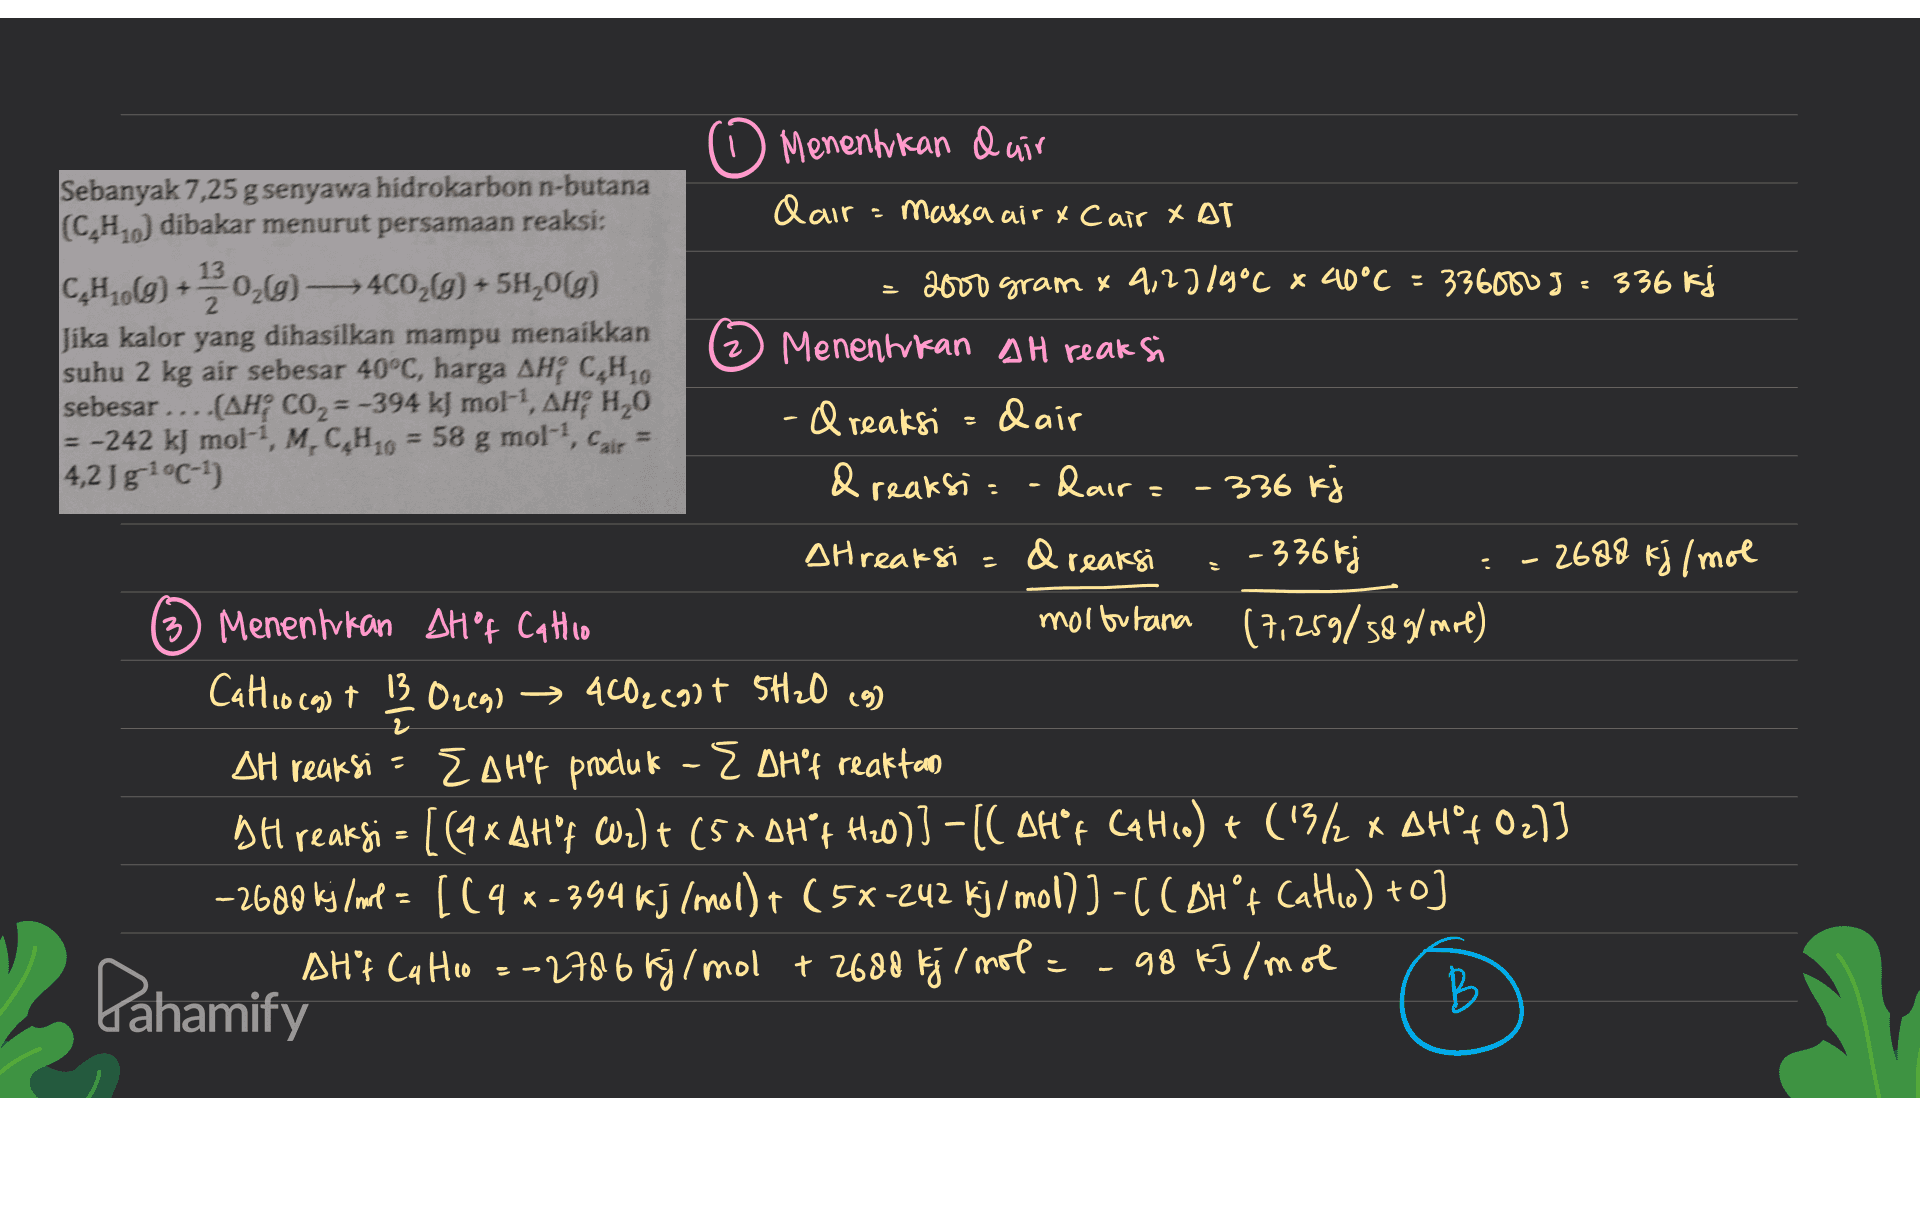 Sebanyak 7,25 g senyawa hidrokarbon n-butana
(C₄H₁₀) dibakar menurut persamaan reaksi:
C₄H₁₀(g) + 13/2 O₂(g) ⟶ 4CO₂(g) + 5H₂O(g)
Jika kalor yang dihasilkan mampu menaikkan
suhu 2 kg air sebesar 40°C, harga ΔH°f C₄H₁₀
sebesar ....(ΔH°f CO₂ = -394 kJ mol⁻¹, ΔH°f H₂O
= -242 kJ mol⁻¹, Mr C₄H₁₀ = 58 g mol⁻¹, Cair =
4,2 J g⁻¹°C⁻¹)
① Menentukan Q air
Q air = Massa air x C air x ΔT
= 2000 gram x 4,2 J/g°C x 40°C = 336000 J = 336 kj
② Menentukan ΔH reaksi
- Q reaksi = Q air
Q reaksi = - Q air = - 336 kj
ΔH reaksi = Q reaksi / mol butana = - 336 kj / (7,25 g/58 g/mol) = - 2688 kj/mol
③ Menentukan ΔH°f C4H10
C4H10 (g) + 13/2 O2(g) → 4CO2(g) + 5H2O (g)
ΔH reaksi = Σ ΔH°f produk - Σ ΔH°f reaktan
ΔH reaksi = [(4 x ΔH°f CO2) + (5 x ΔH°f H2O)] - [(ΔH°f C4H10) + (13/2 x ΔH°f O2)]
-2688 kj/mol = [(4 x -394 kj/mol) + (5 x -242 kj/mol)] - [(ΔH°f C4H10) + 0]
ΔH°f C4H10 = -2786 kj/mol + 2688 kj/mol = - 98 kJ/mol
B
Pahamify